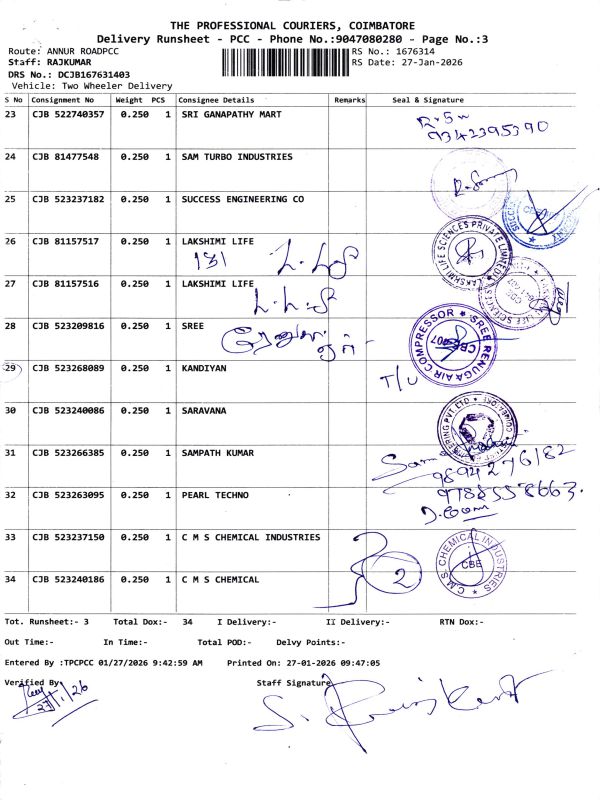 THE PROFESSIONAL COURIERS, COIMBATORE
Delivery Runsheet - PCC - Phone No.:9047080280 - Page No.:3
Route: ANNUR ROADPCC
RS No.: 1676314
Staff: RAJKUMAR
RS Date: 27-Jan-2026
DRS No.: DCJB167631403
Vehicle: Two Wheeler Delivery
S No Consignment No Weight PCS Consignee Details Remarks Seal & Signature
23 CJB 522740357 0.250 1 SRI GANAPATHY MART
9342395390
24 CJB 81477548 0.250 1 SAM TURBO INDUSTRIES
25 CJB 523237182 0.250 1 SUCCESS ENGINEERING CO
26 CJB 81157517 0.250 1 LAKSHIMI LIFE
LAKSHMI LIFE SCIENCES PRIVATE LIMITED
27 CJB 81157516 0.250 1 LAKSHIMI LIFE
28 CJB 523209816 0.250 1 SREE
SREE RENUGA AIR COMPRESSOR
29 CJB 523268089 0.250 1 KANDIYAN
T/U
30 CJB 523240086 0.250 1 SARAVANA
31 CJB 523266385 0.250 1 SAMPATH KUMAR
9894276182
32 CJB 523263095 0.250 1 PEARL TECHNO
9788558663.
33 CJB 523237150 0.250 1 C M S CHEMICAL INDUSTRIES
C.M.S. CHEMICAL INDUSTRIES
CBE
34 CJB 523240186 0.250 1 C M S CHEMICAL
2
Tot. Runsheet:- 3 Total Dox:- 34 I Delivery:- II Delivery:- RTN Dox:-
Out Time:- In Time:- Total POD:- Delvy Points:-
Entered By :TPCPCC 01/27/2026 9:42:59 AM Printed On: 27-01-2026 09:47:05
Verified By
Staff Signature
27/1/26